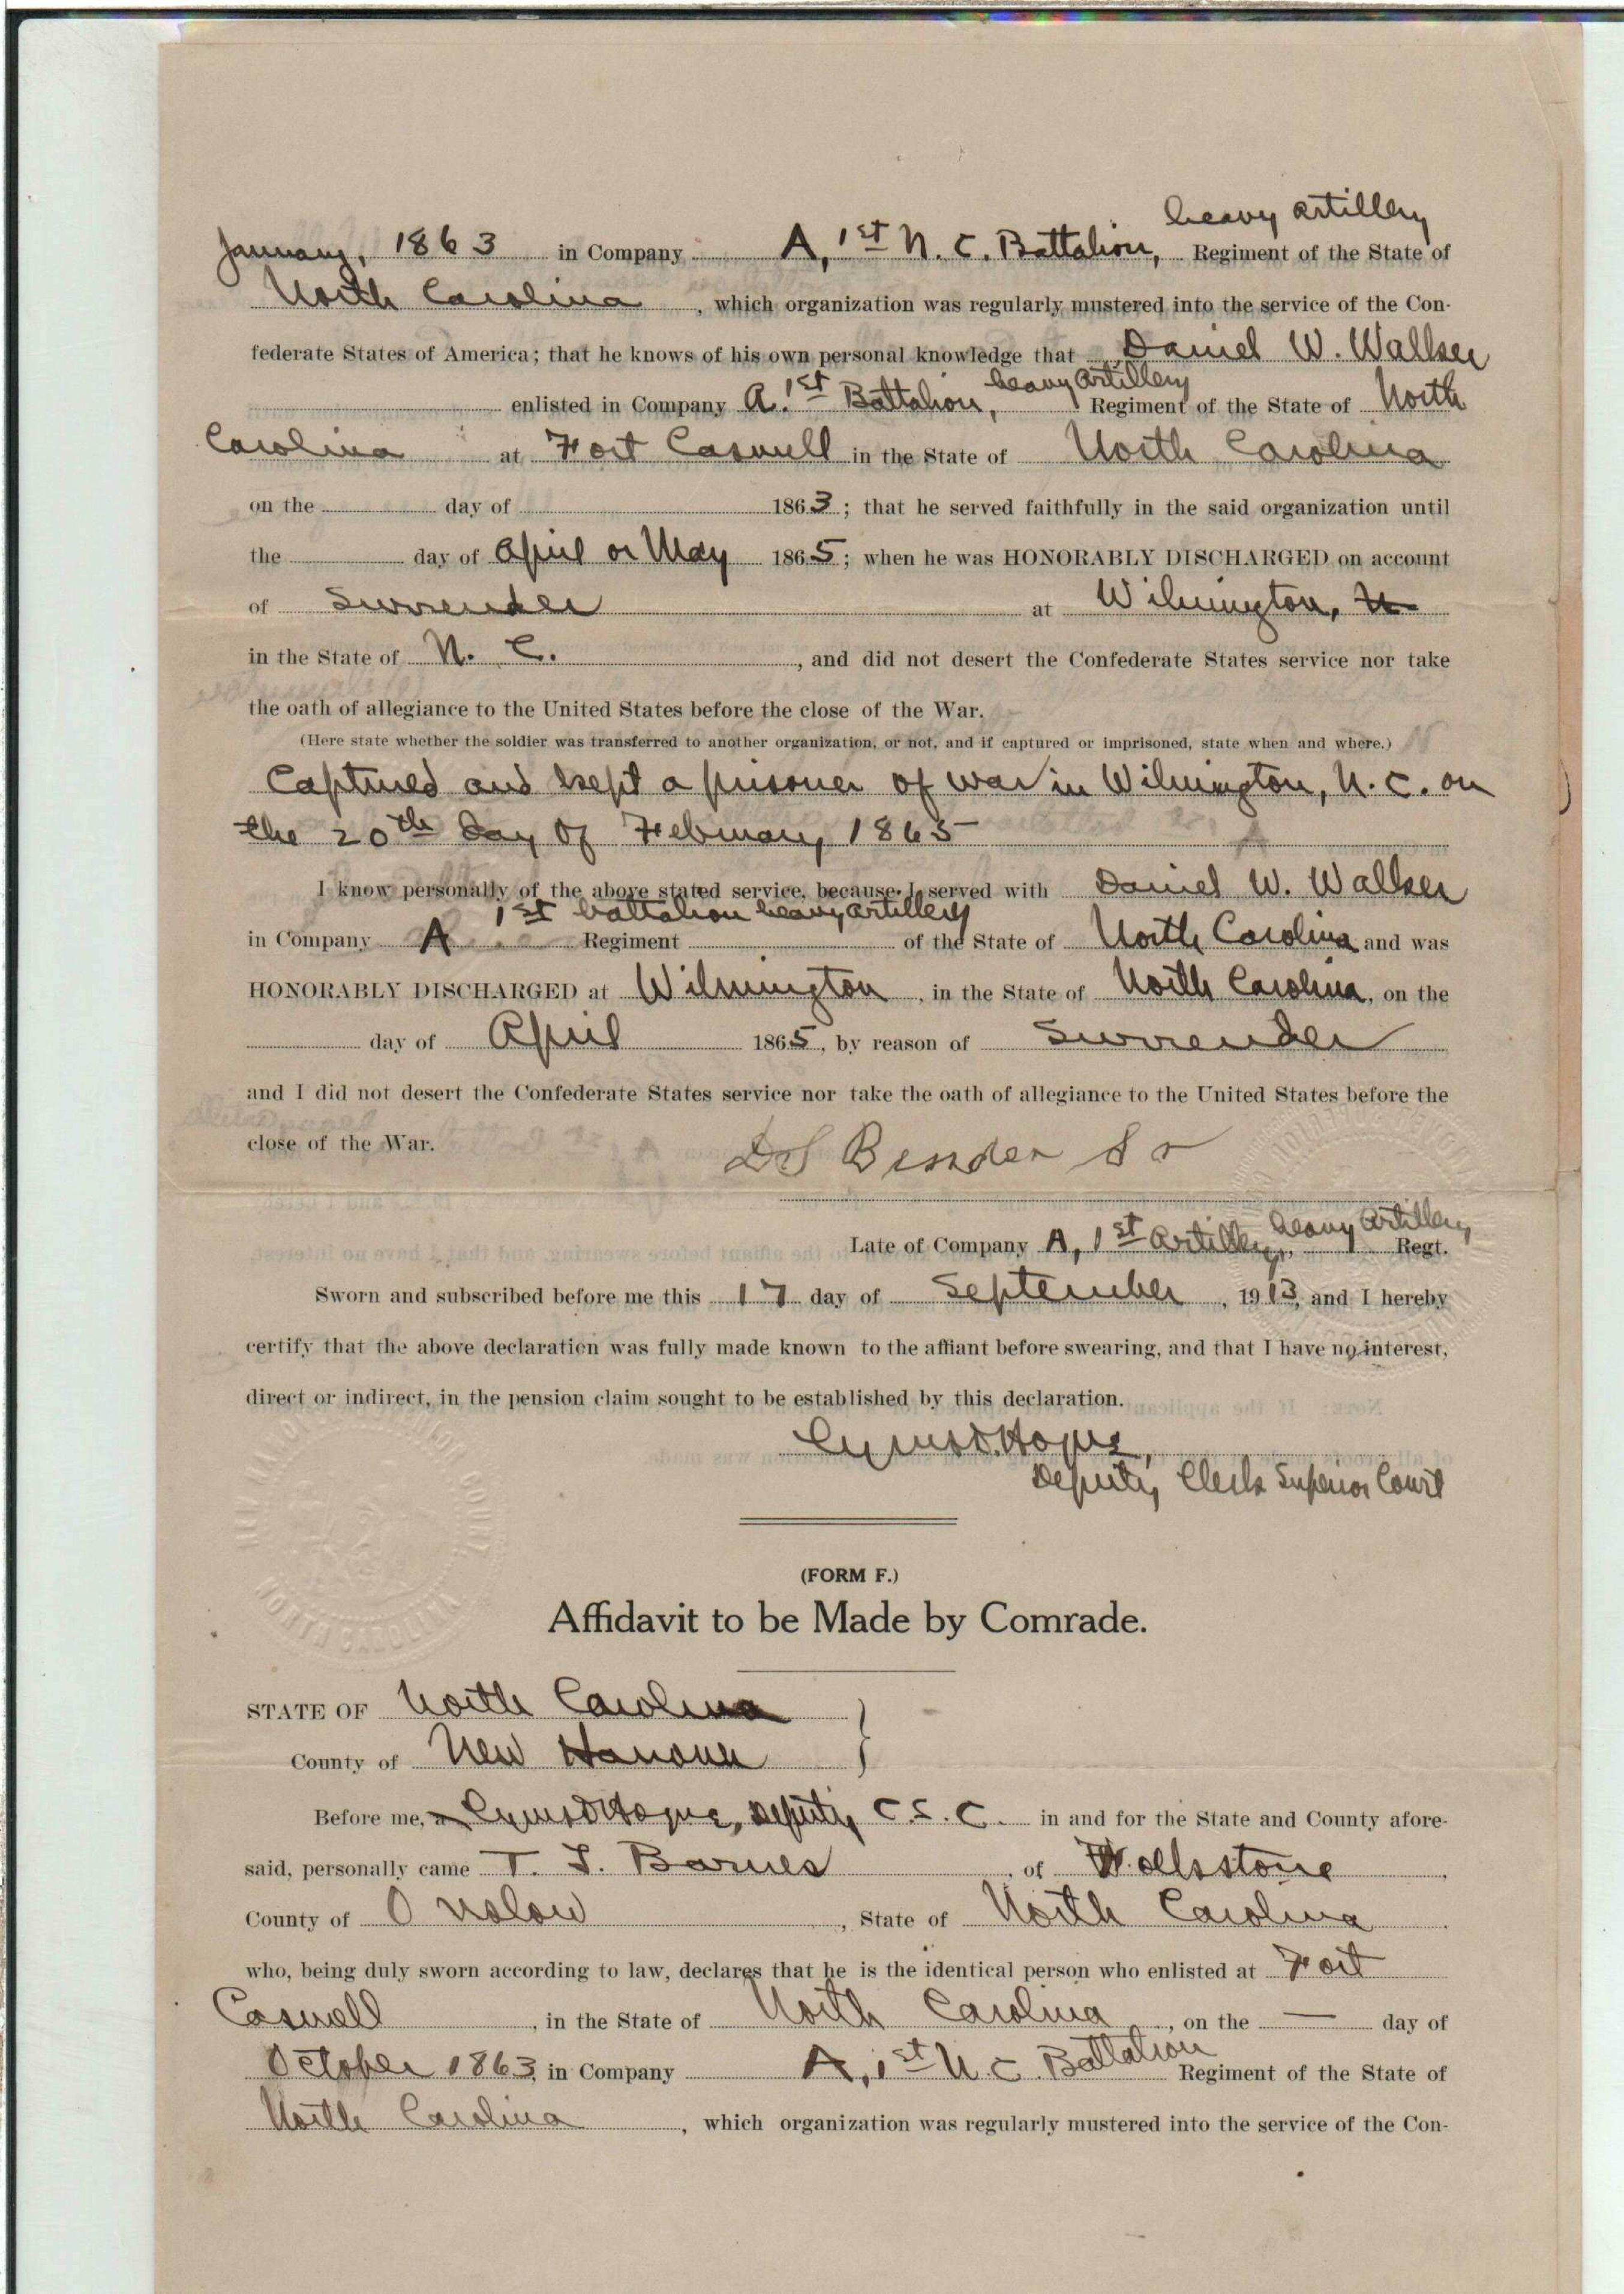 heavy artillery
January, 1863 in Company A, 1st N. C. Battalion, Regiment of the State of
North Carolina, which organization was regularly mustered into the service of the Con-
federate States of America; that he knows of his own personal knowledge that Daniel W. Walker
heavy artillery
enlisted in Company A. 1st Battalion, Regiment of the State of North
Carolina at Fort Caswell in the State of North Carolina
on the day of 1863; that he served faithfully in the said organization until
the day of April or May 1865; when he was HONORABLY DISCHARGED on account
of Surrender at Wilmington, N
in the State of N. C., and did not desert the Confederate States service nor take
the oath of allegiance to the United States before the close of the War.
(Here state whether the soldier was transferred to another organization, or not, and if captured or imprisoned, state when and where.)
Captured and kept a prisoner of war in Wilmington, N. C. on
the 20th day of February 1865
I know personally of the above stated service, because I served with Daniel W. Walker
1st battalion heavy artillery
in Company A Regiment of the State of North Carolina and was
HONORABLY DISCHARGED at Wilmington, in the State of North Carolina, on the
day of April 1865, by reason of Surrender
and I did not desert the Confederate States service nor take the oath of allegiance to the United States before the
close of the War.
D S Bender Sr
heavy artillery
Late of Company A, 1st Artillery, Regt.
Sworn and subscribed before me this 17 day of September, 1913, and I hereby
certify that the above declaration was fully made known to the affiant before swearing, and that I have no interest,
direct or indirect, in the pension claim sought to be established by this declaration.
Cyrus D. Hogue,
Deputy Clerk Superior Court
(FORM F.)
Affidavit to be Made by Comrade.
STATE OF North Carolina
County of New Hanover
Before me, a Cyrus D Hogue, Deputy C. S. C. in and for the State and County afore-
said, personally came T. J. Barnes, of Folkstone,
County of Onslow, State of North Carolina.
who, being duly sworn according to law, declares that he is the identical person who enlisted at Fort
Caswell, in the State of North Carolina, on the — day of
October 1863, in Company A, 1st N. C. Battalion Regiment of the State of
North Carolina, which organization was regularly mustered into the service of the Con-
NORTH CAROLINA